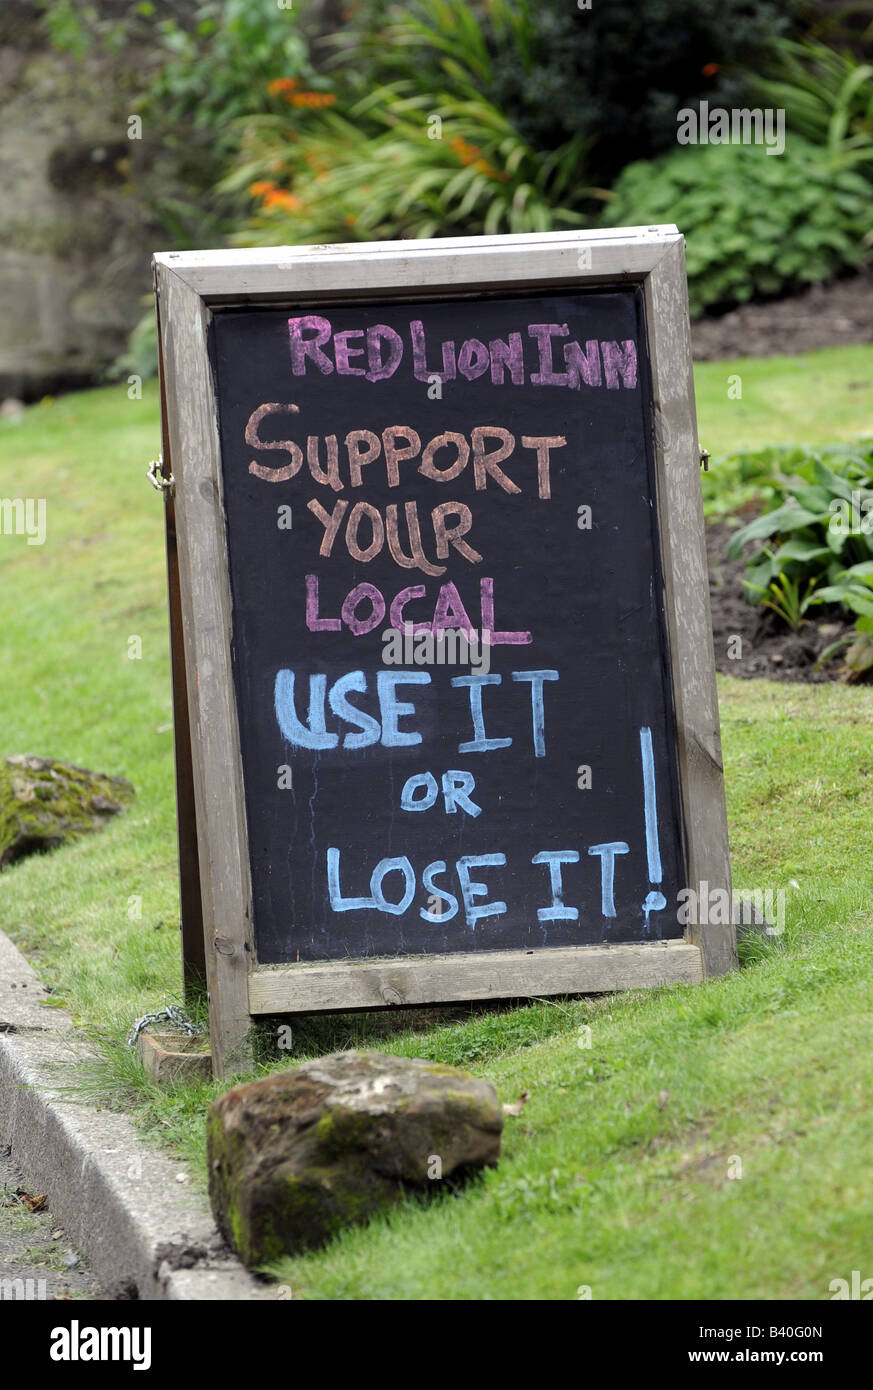 RED LION INN
SUPPORT
YOUR
LOCAL
USE IT
OR
LOSE IT!
alamy
Image ID: B40G0N
www.alamy.com